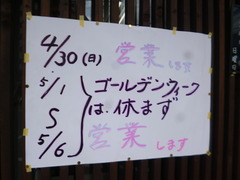 4/30(日) 営業します
5/1
S
5/6
ゴールデンウィーク
は、休まず
営業します
日曜日